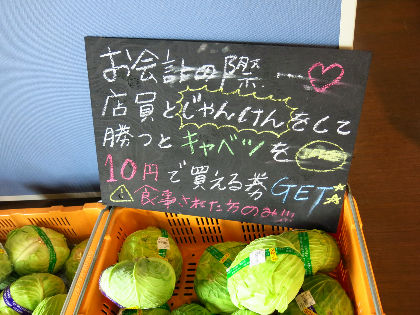 お会計の際…♡
店員とじゃんけんをして
勝つとキャベツを
10円で買える券GET☆
⚠食事された方のみ!!!